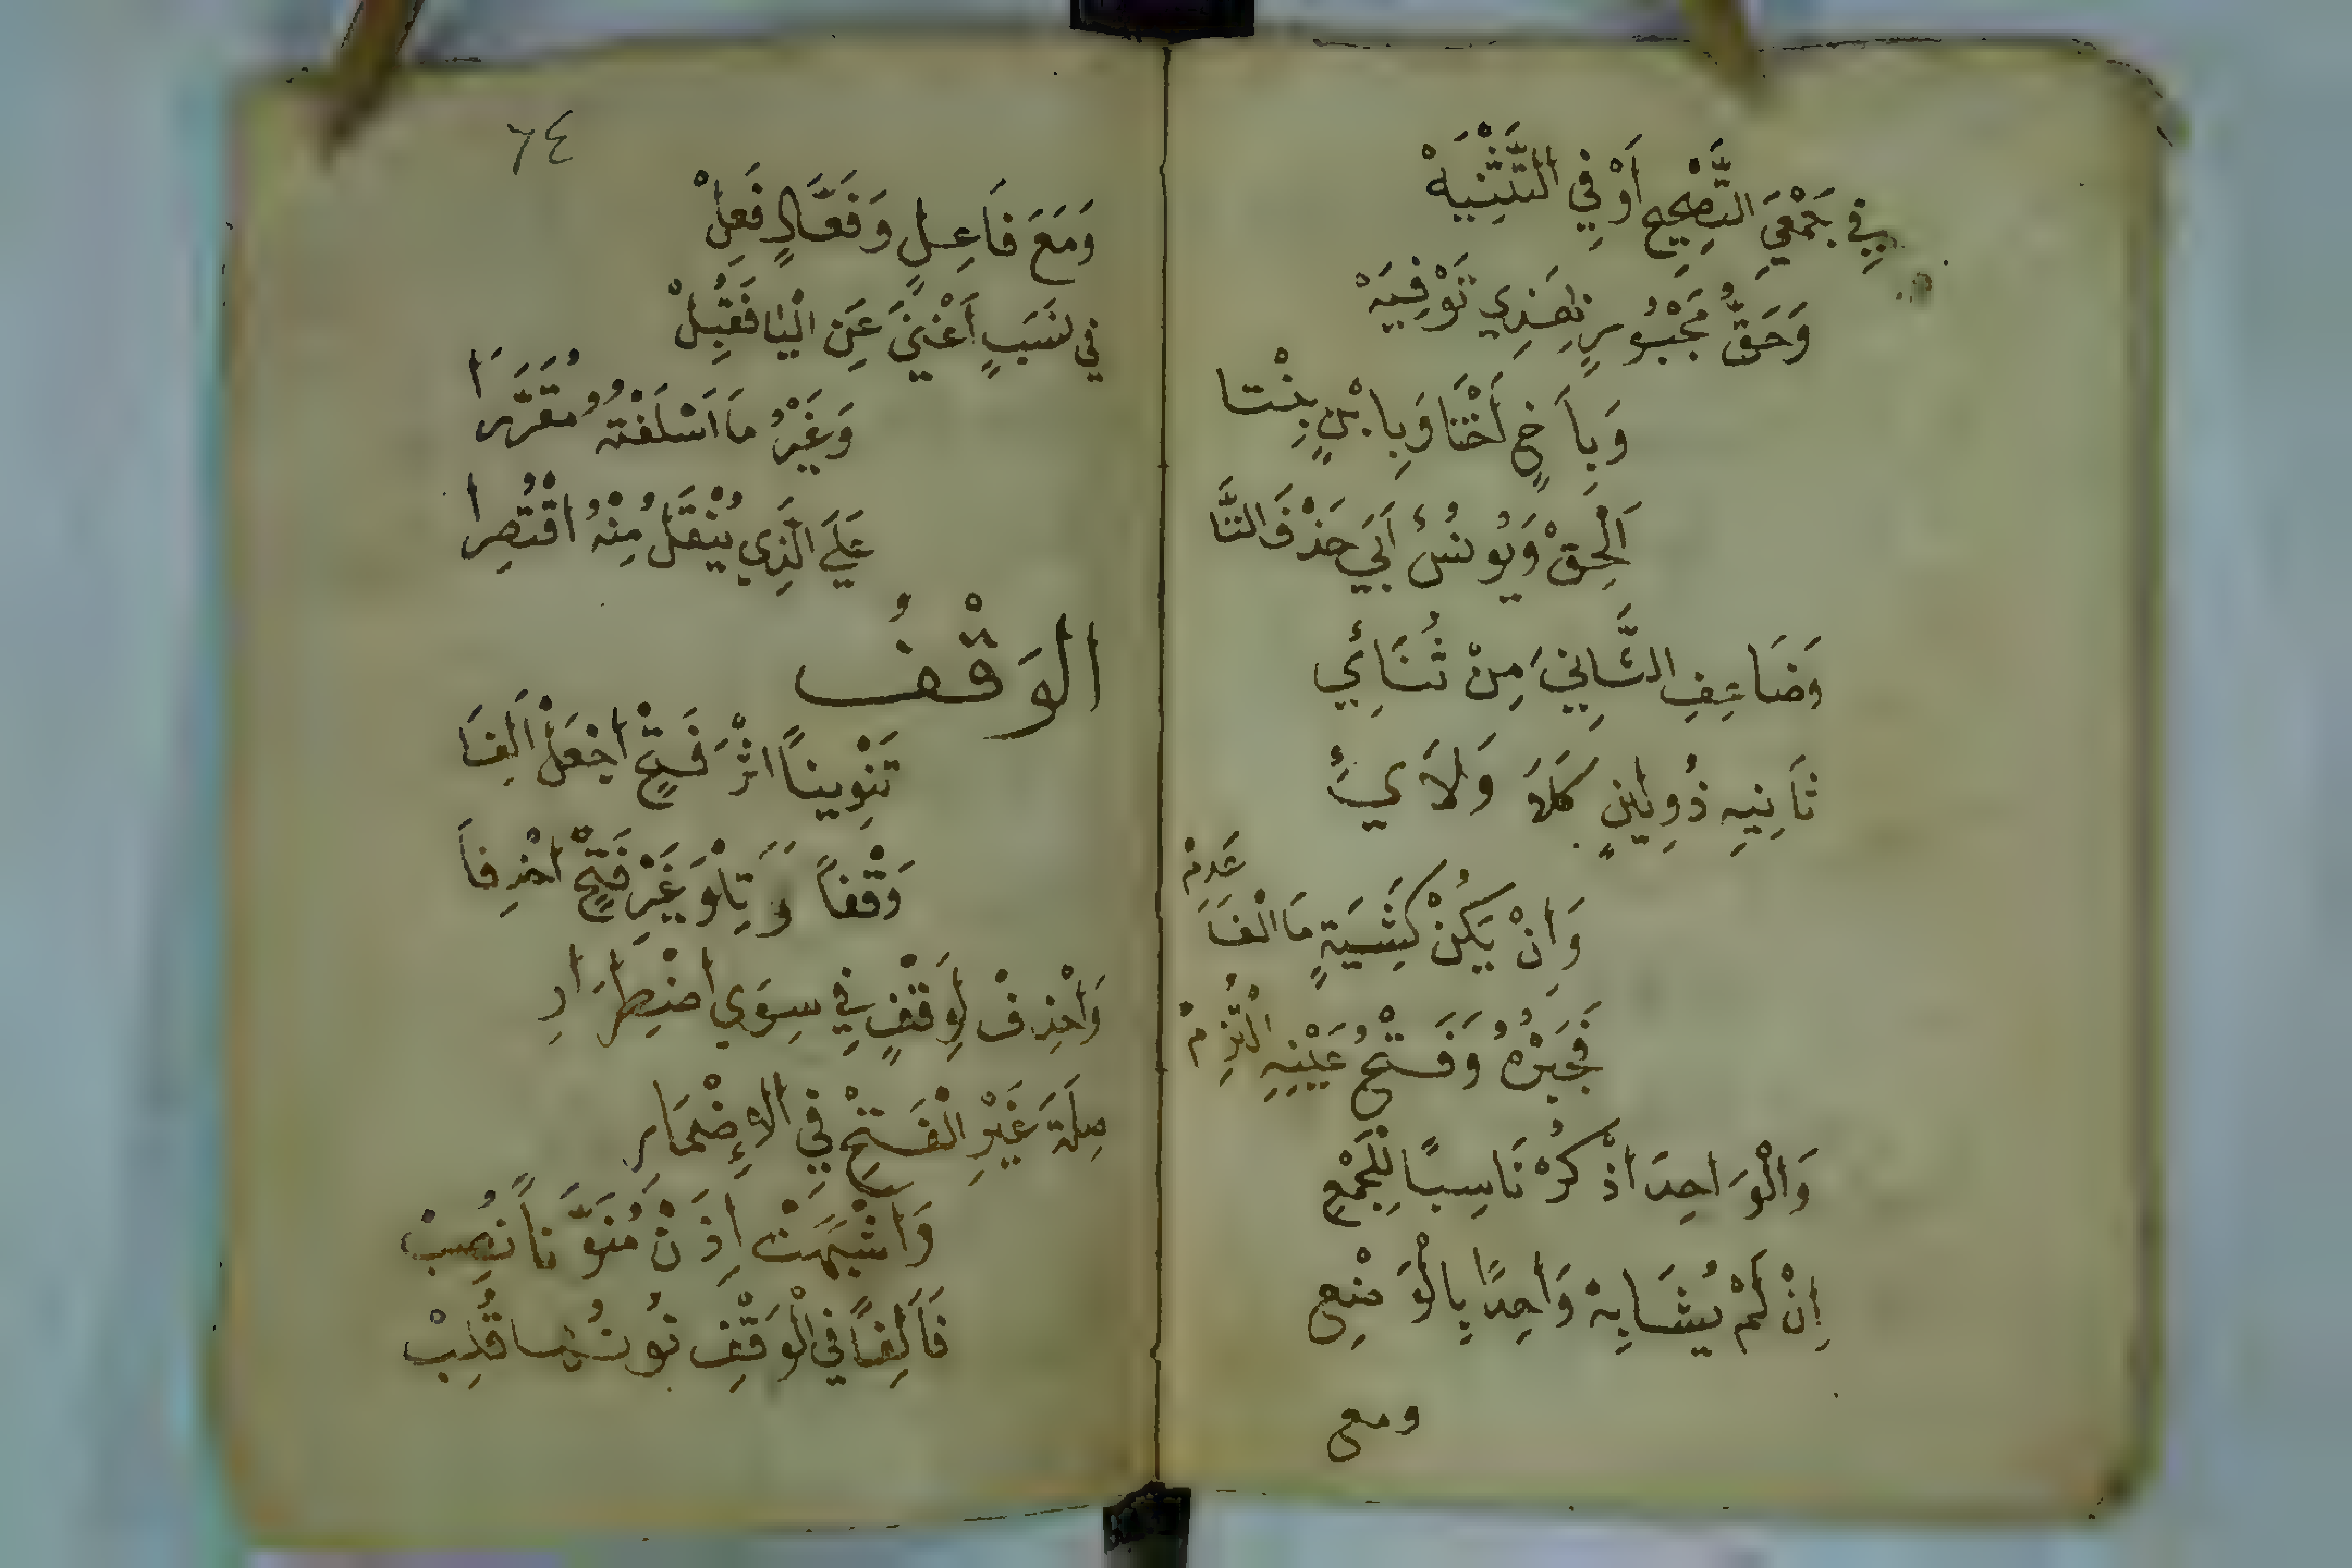 فِي جَمْعَيِ التَّصْحِيحِ أَوْ فِي التَّثْنِيَهْ
وَحَقُّ مَجْبُورٍ بِهَذِي تَوْفِيَهْ
وَبِأَخٍ أُخْتًا وَبِابْنٍ بِنْتَا
أَلْحِقْ وَيُونُسُ أَبَى حَذْفَ التَّا
وَضَاعِفِ الثَّانِيَ مِنْ ثُنَائِي
ثَانِيهِ ذُو لِينٍ كَلَا وَلَائِي
وَانْ يَكُنْ كَشِيَةٍ مَا الْفَا عَدِمْ
فَجَبْرُهُ وَفَتْحُ عَيْنِهِ الْتُزِمْ
وَالْوَاحِدَ اذْكُرْ نَاسِبًا لِلْجَمْعِ
اِنْ لَمْ يُشَابِهْ وَاحِدًا بِالْوَضْعِ
ومع
٦٤
وَمَعَ فَاعِلٍ وَفَعَّالٍ فَعِلْ
فِي نَسَبٍ أَغْنَى عَنِ الْيَا فَقُبِلْ
وَغَيْرُ مَا اَسْلَفْتُهُ مُقَرَّرَا
عَلَى الَّذِي يُنْقَلُ مِنْهُ اقْتُصِرَا
الوَقْفُ
تَنْوِينًا اثْرَ فَتْحٍ اجْعَلْ أَلِفَا
وَقْفًا وَتِلْوَ غَيْرِ فَتْحٍ احْذِفَا
وَاحْذِفْ لِوَقْفٍ فِي سِوَى اضْطِرَارِ
صِلَةَ غَيْرِ الْفَتْحِ فِي الاِضْمَارِ
وَاشْبَهَتْ اِذَنْ مُنَوَّنًا نُصِبْ
فَأَلِفًا فِي الْوَقْفِ نُونُهَا قُلِبْ